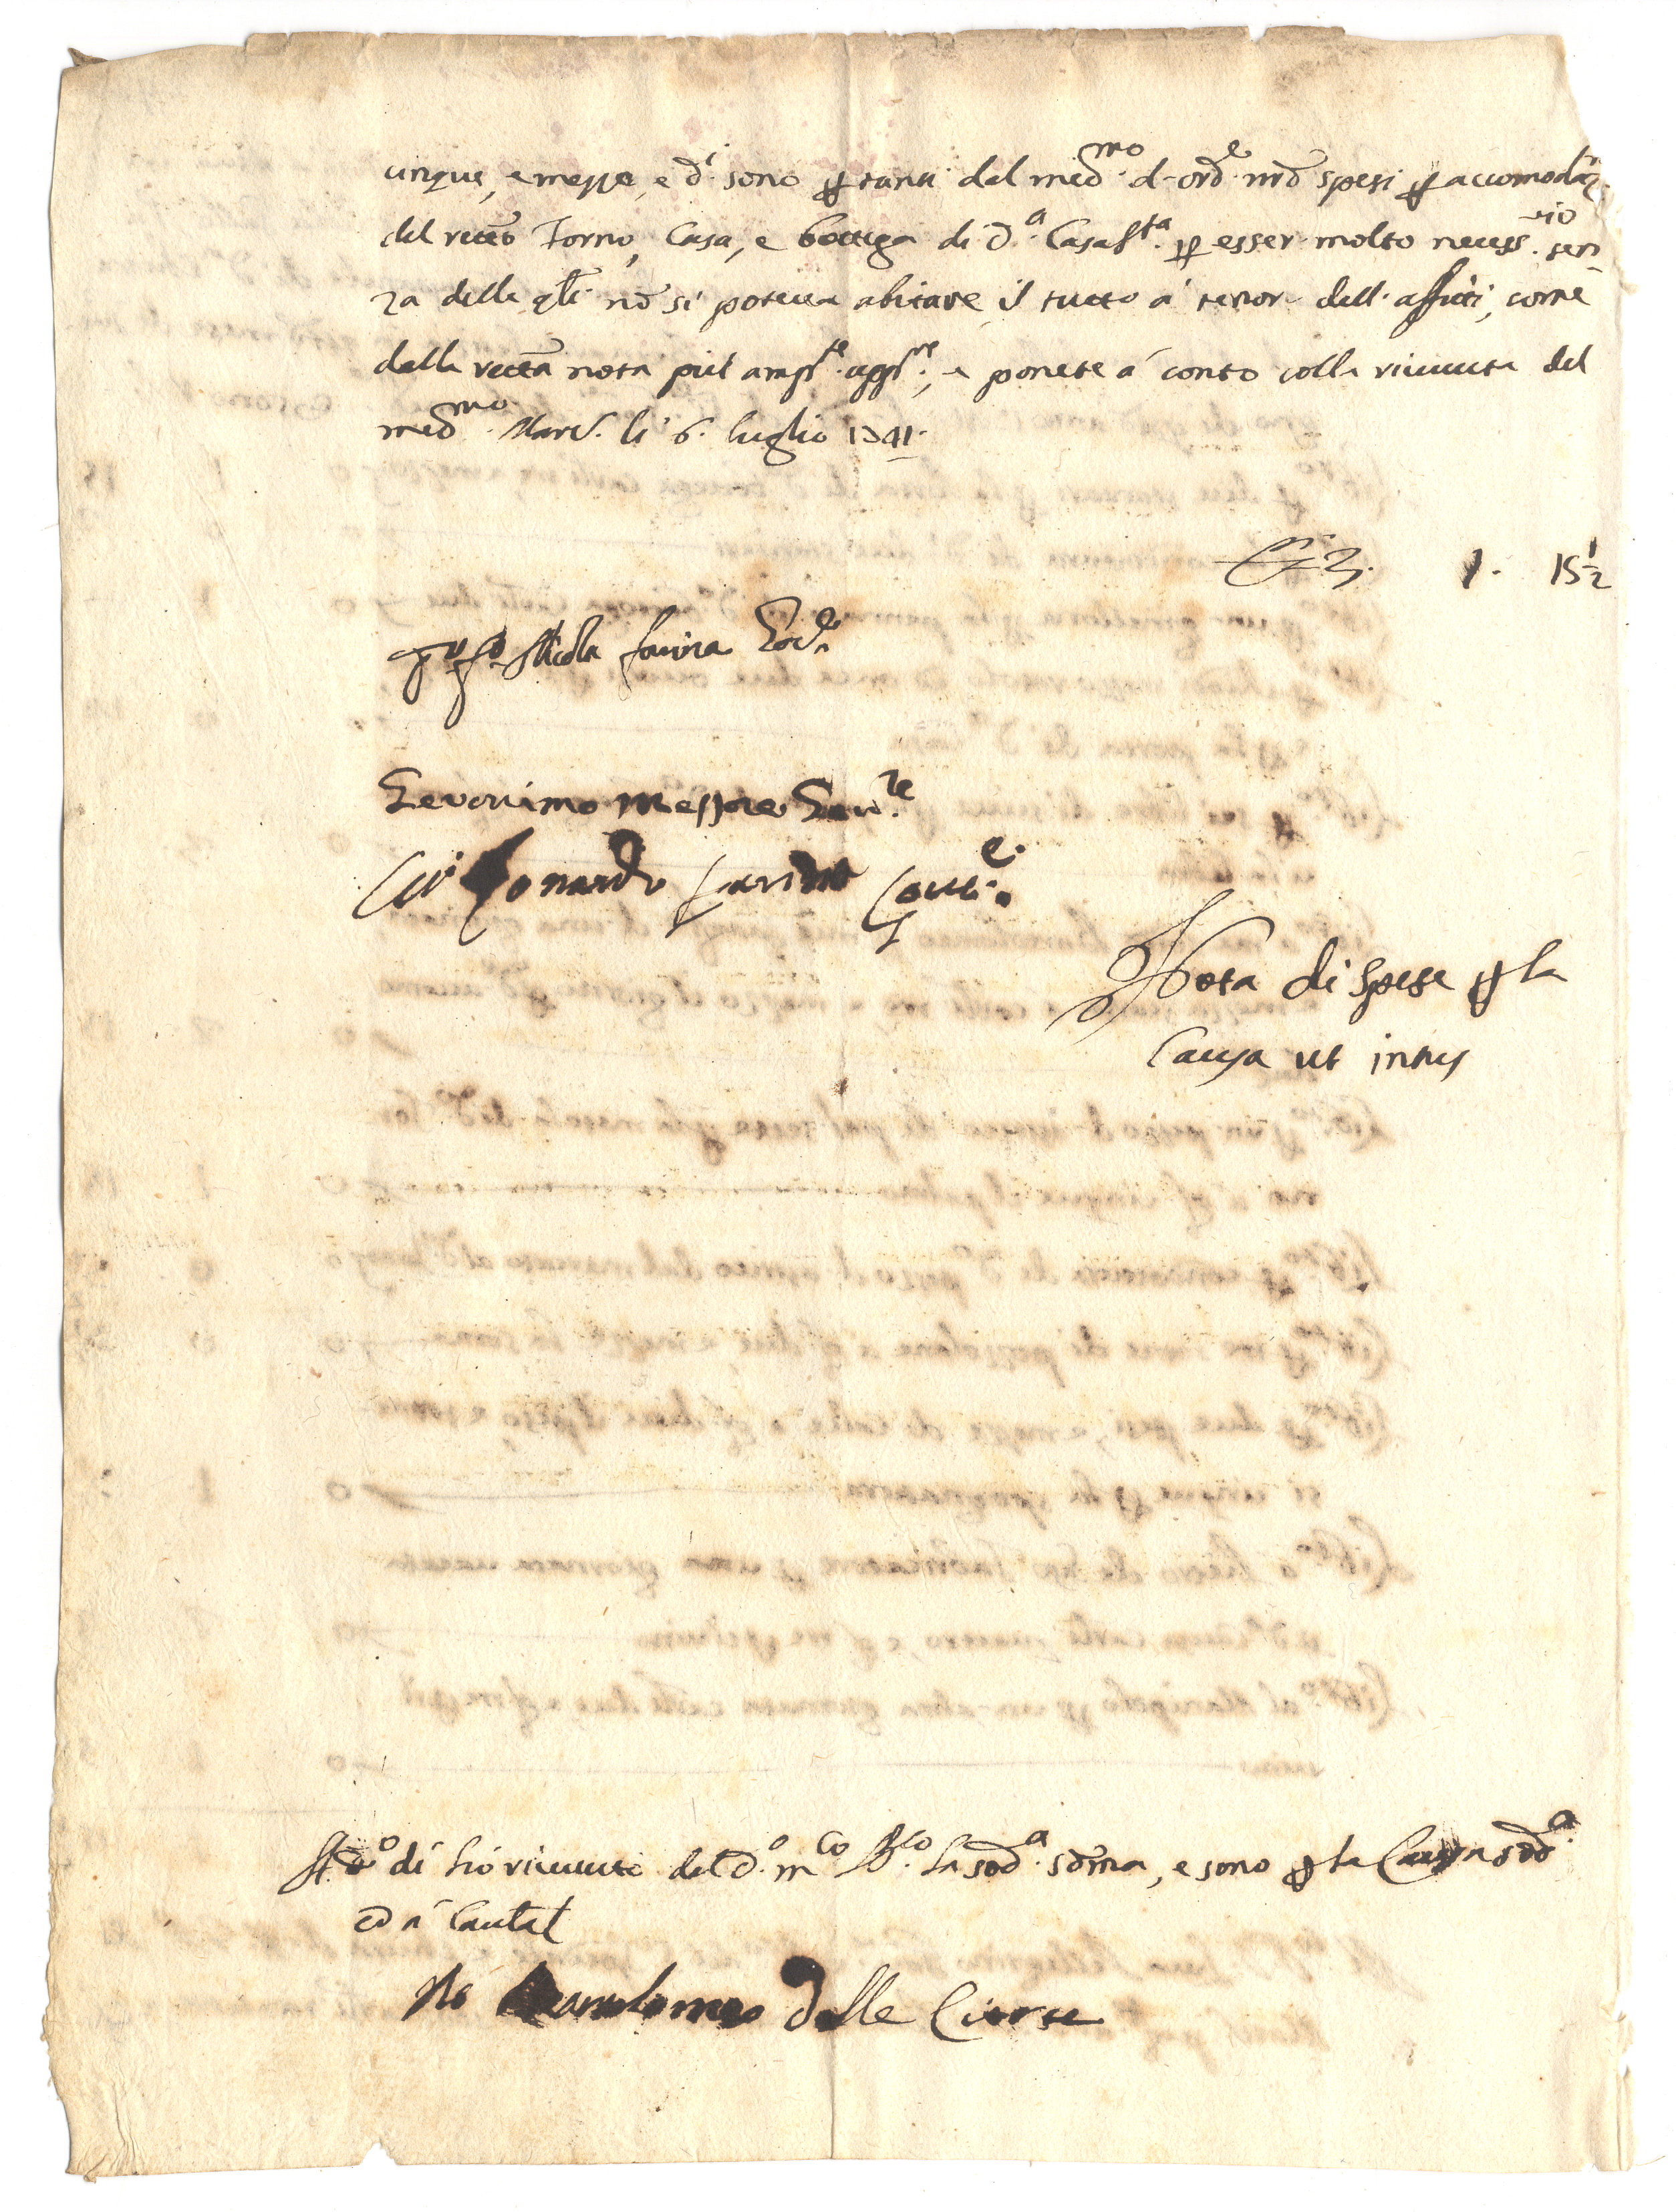 cinque, e mezzo, e d.i sono p tanti dal med.mo d'ord.e nrō spesi p accomodaz.
del rettō forno, Casa, e bottega di d.a Casas.ta p esser molto necess.rio sen
za delle qli nō si poteva abitare, il tutto á tenor dell'affitti, come
dalla rettā nota più amp.te app.re, e ponete á conto colla ricevuta del
med.mo Marc. li 6. luglio 1741.
1. 15½
Nicola farina Eco.e
Geronimo Messore
Leonardo farina
Nota di Spese p la
Causa ut intus
di hò ricevuto dal d.o m.co la sod.a sōma, e sono p la Causa sod.a
ed á Cautel
Io Bartolomeo delle Cierse